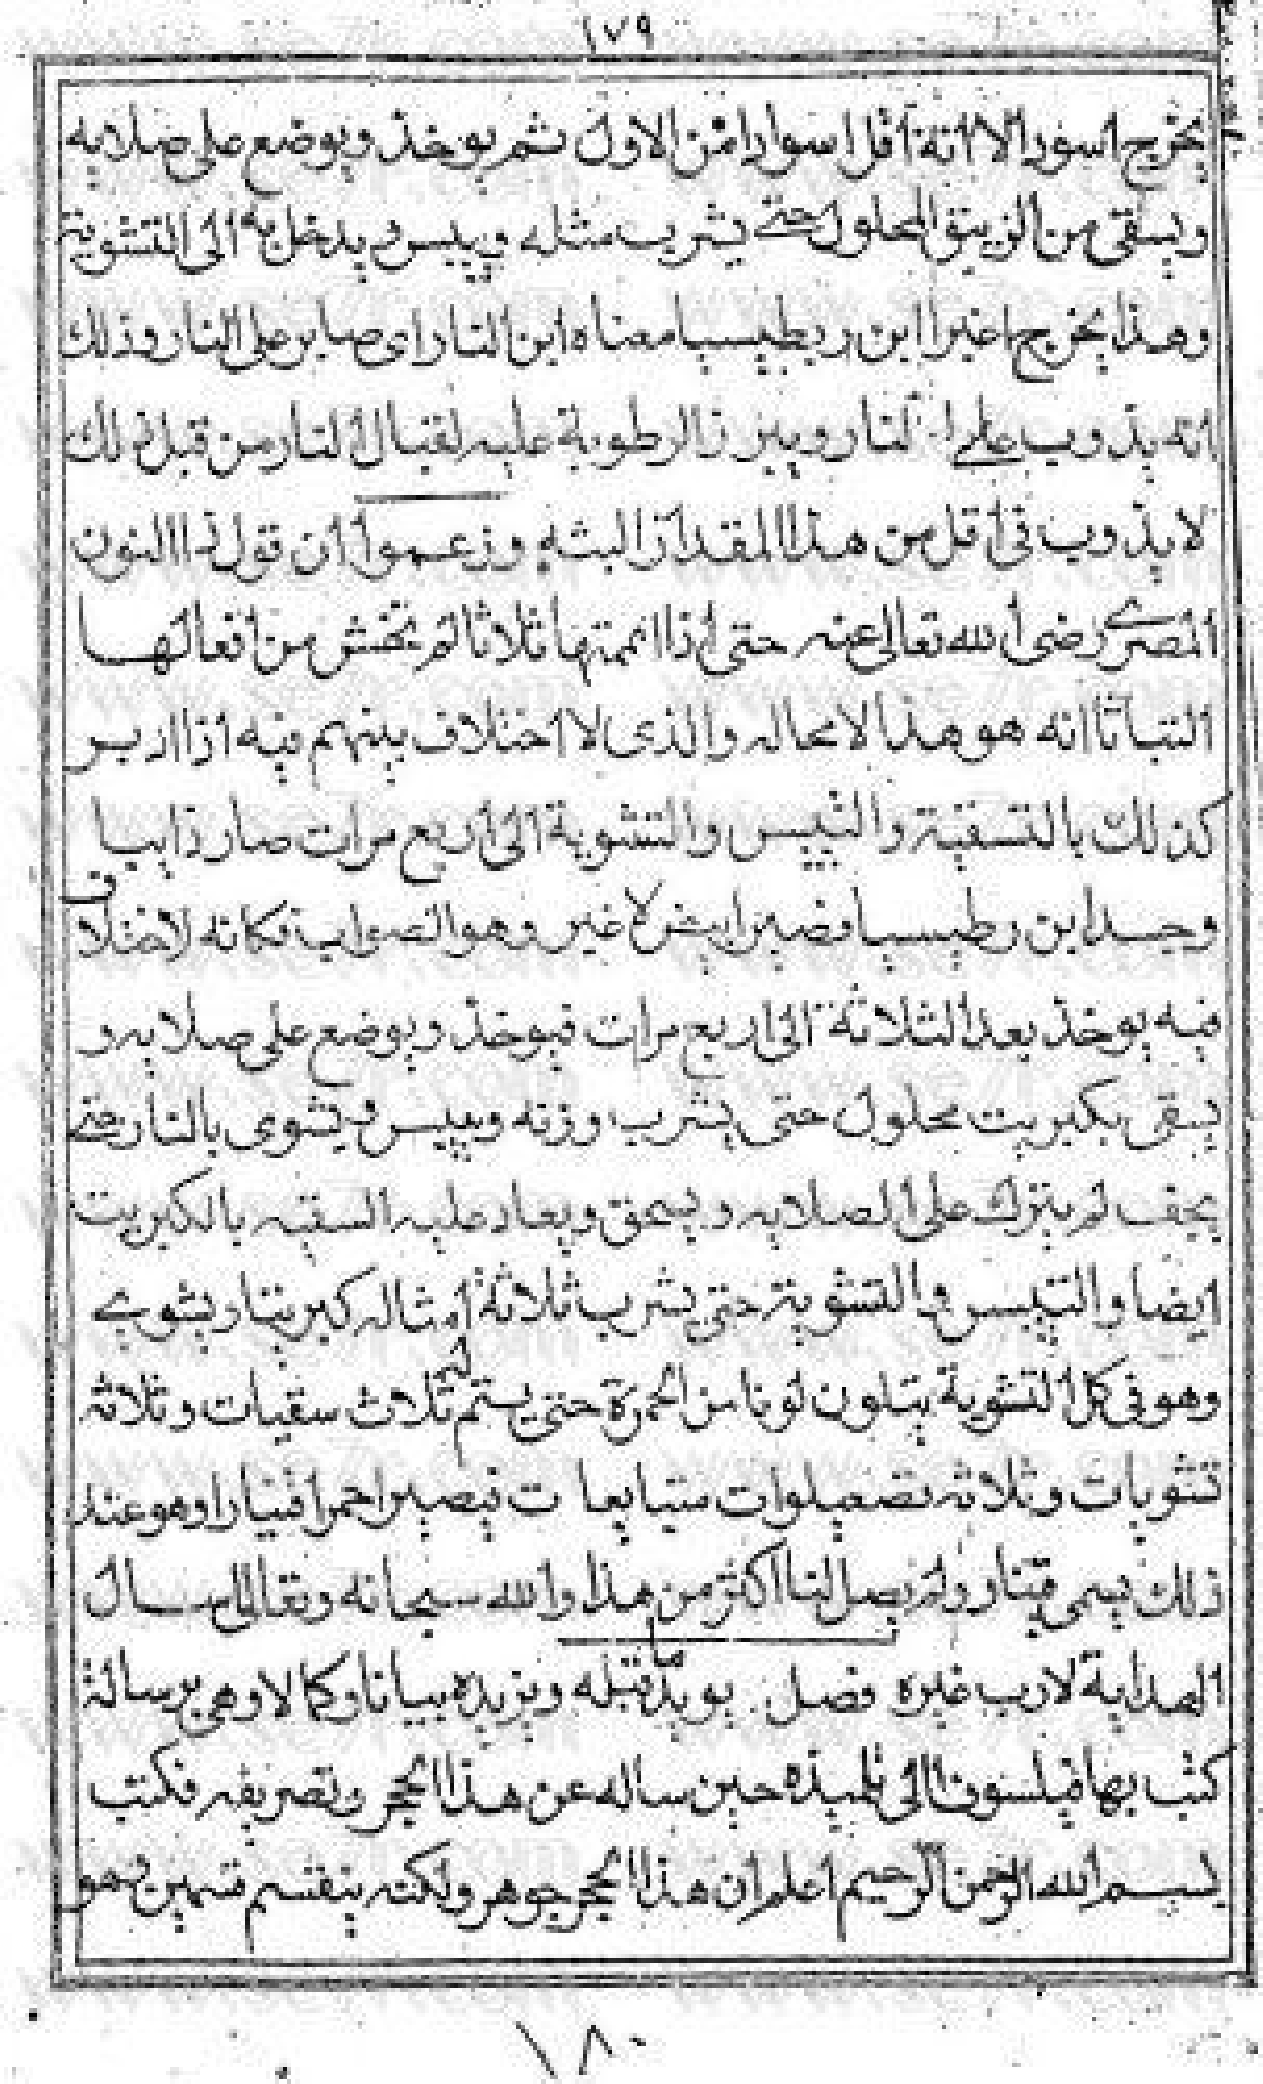 ١٧٩
يخرج اسود الا انه اقل اسوادا من الاول ثم يوخذ ويوضع على صلايه
ويسقى من الزيبق المحلول حتى يشرب مثله وييبس ويدخل به الى التشوية
وهذا يخرج اغبرا ابن ربطيسيا معناه ابن النار اى صابر على النار وذلك
انه يذوب على النار الرطوبة عليه لقبال النار من قبل ذلك
لا يذوب فى اقل من هذا المقدار البثه وزعموا ان قول ذا النون
المصرى رضى الله تعالى عنه حتى اذا اتممتها ثلاثا لم تخش من افعالها
انه هو هذا لا محاله والذى لا اختلاف بينهم فيه اذا
كذلك بالتسقية والتيبيس والتشوية الى اربع مرات صار ذايبا
ابن رطيسيا فضير ابيض لا غير وهو الصواب فكانه لا اختلاف
فيه يوخذ بعد الثلاثة الى اربع مرات فيوخذ ويوضع على صلايه و
يسقى بكبريت محلول حتى يشرب وزنه وييبس ويشوى بالنار حتى
يجف ثم يترك على الصلايه ويسحق ويعاد عليه السقيه بالكبريت
ايضا والتيبيس والتشوية حتى يشرب ثلاثة امثاله كبريتا ويشوى
وهو فى كل التشوية يتلون لونا من الحمرة حتى يستتم له ثلاث سقيات وثلاثه
تشويات وثلاثه متتابعات فيصير احمرا وهو عند
ذلك يسمى ولم يصل لنا اكثر من هذا والله سبحانه وتعالى اسال
الهداية لا رب غيره فصل يويد ما قبله ويزيده بيانا وكمالا وهى رسالة
كتب بها فيلسوف الى تلميذه حين ساله عن هذا الحجر وتصريفه فكتب
بسم الله الرحمن الرحيم اعلم ان هذا الحجر جوهر ولكنه ينقسم قسمين فهو
١٨٠